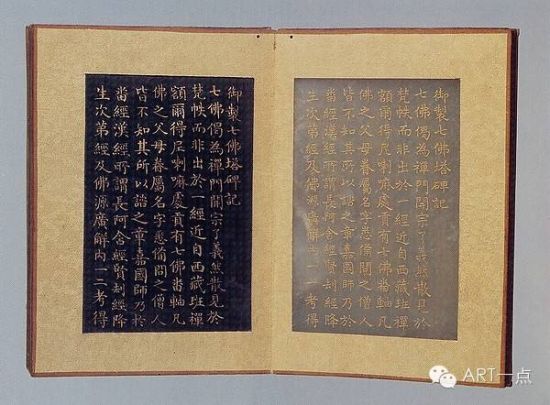 御製七佛塔碑記
七佛偈為禪門開宗了義然散見於
梵帙而非出於一經近自西藏班禪
額爾得尼喇嘛處貢有七佛畨軸凡
佛之父母眷屬名字悉備問之僧人
皆不知其所以諮之章嘉國師乃於
畨經漢經所謂長阿含經賢刼經降
生次第經及佛源廣解内一一考得
御製七佛塔碑記
七佛偈為禪門開宗了義然散見於
梵帙而非出於一經近自西藏班禪
額爾得尼喇嘛處貢有七佛畨軸凡
佛之父母眷屬名字悉備問之僧人
皆不知其所以諮之章嘉國師乃於
畨經漢經所謂長阿含經賢刼經降
生次第經及佛源廣解内一一考得
ART一点